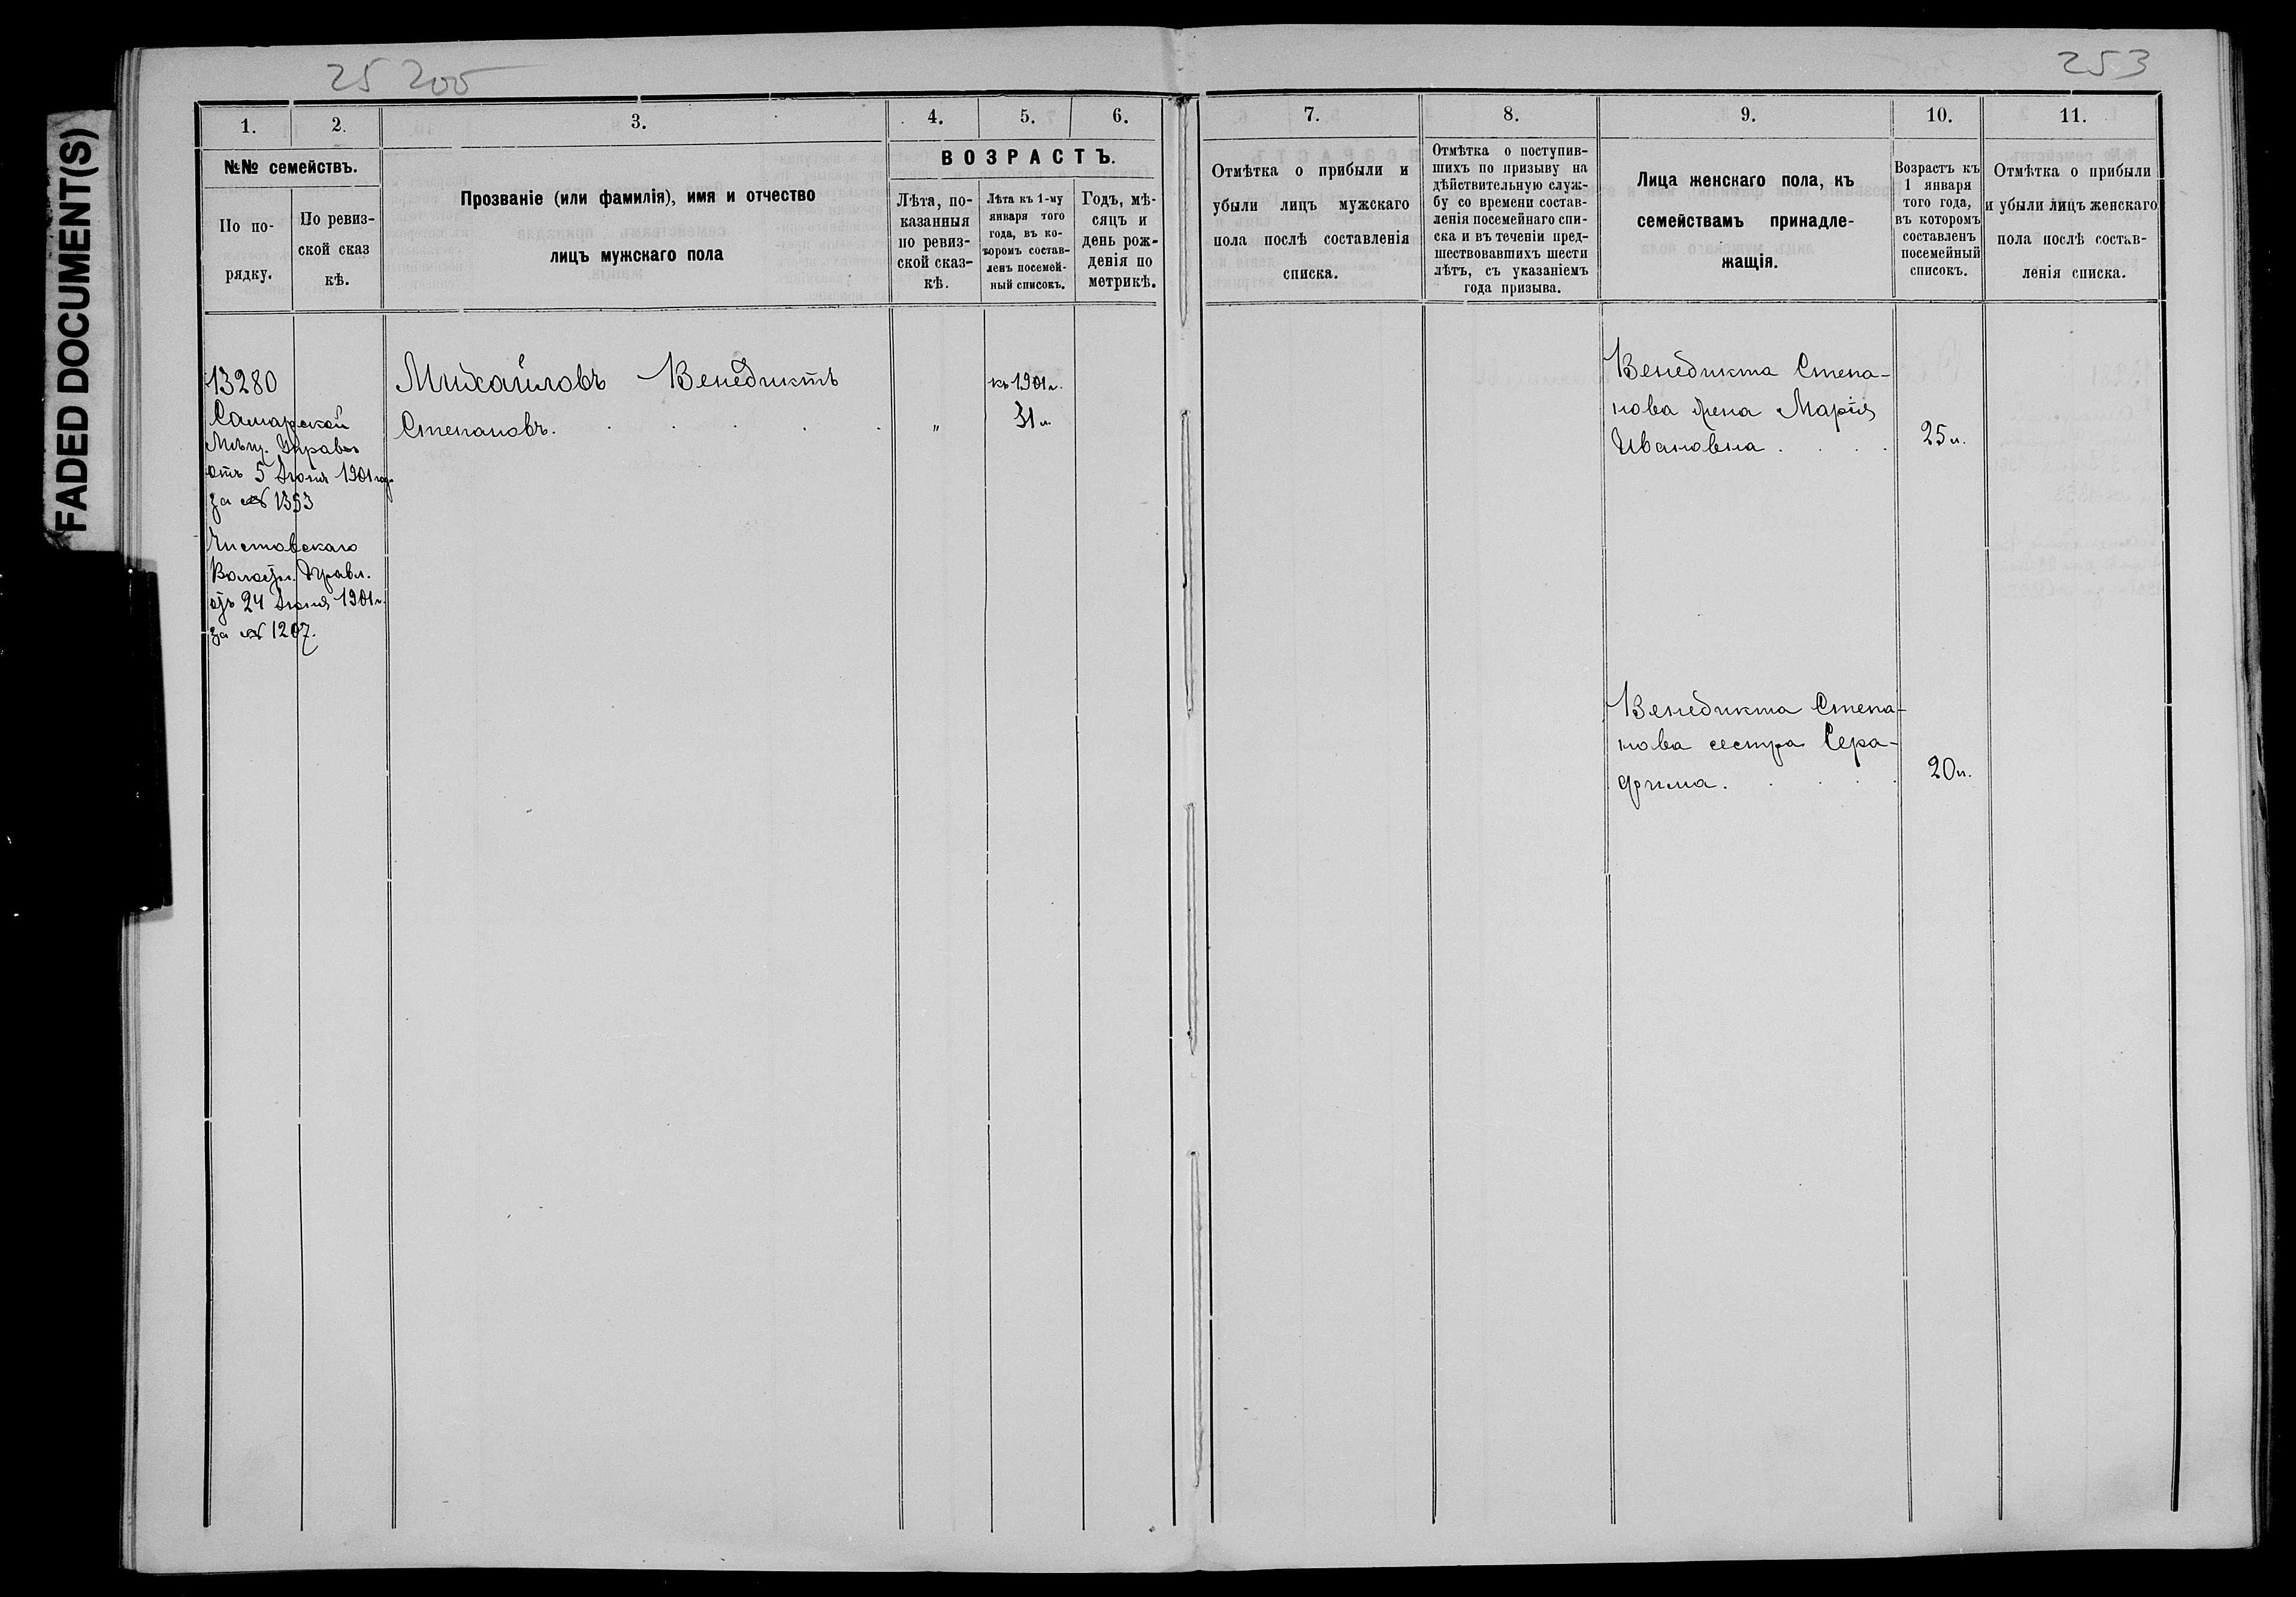 FADED DOCUMENT(S)
25 200
253
1. 2. 3. 4. 5. 6.
№№ семействъ.
По по-
рядку.
По ревиз-
ской сказ
кѣ.
Прозваніе (или фамилія), имя и отчество
лицъ мужскаго пола
ВОЗРАСТЪ.
Лѣта, по-
казанныя
по ревиз-
ской сказ-
кѣ.
Лѣта къ 1-му
января того
года, въ ко-
торомъ состав-
ленъ посемей-
ный списокъ.
Годъ, мѣ-
сяцъ и
день рож-
денія по
метрикѣ.
7. 8. 9. 10. 11.
Отмѣтка о прибыли и
убыли лицъ мужскаго
пола послѣ составленія
списка.
Отмѣтка о поступив-
шихъ по призыву на
дѣйствительную служ-
бу со времени состав-
ленія посемейнаго спи-
ска и въ теченіи пред-
шествовавшихъ шести
лѣтъ, съ указаніемъ
года призыва.
Лица женскаго пола, къ
семействамъ принадле-
жащія.
Возрастъ къ
1 января
того года,
въ которомъ
составленъ
посемейный
списокъ.
Отмѣтка о прибыли
и убыли лицъ женскаго
пола послѣ состав-
ленія списка.
13280
Самарской
Мѣщ. Управы
отъ 5 Іюня 1901 год.
за № 1353
Чистовскаго
Волостн. Правл.
отъ 24 Іюня 1901 г.
за № 1207.
Михайловъ Венедиктъ
Степановъ. . . . .
"
къ 1901 г.
31 л.
Венедикта Степа-
нова жена Марія
Ивановна . . . .
25 л.
Венедикта Степа-
нова сестра Сера-
фима. . . . .
20 л.